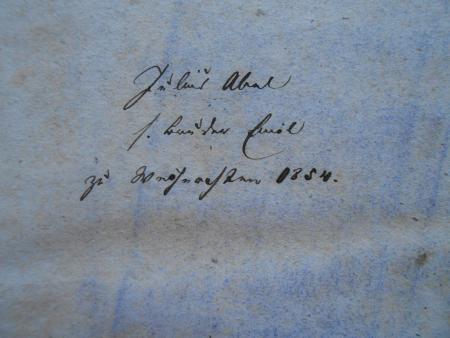 Julius Abel
s. Bruder Emil
zu Weihnachten 1854.